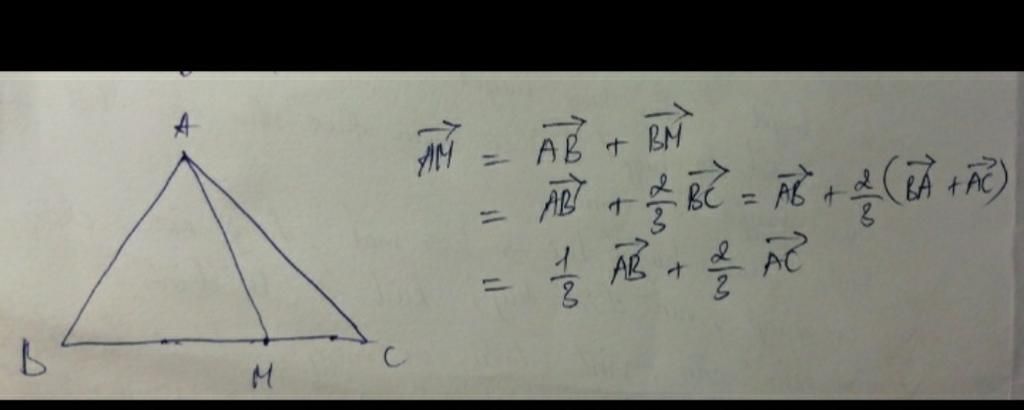 A
B
M
C
$\overrightarrow{AM} = \overrightarrow{AB} + \overrightarrow{BM}$
$= \overrightarrow{AB} + \frac{2}{3} \overrightarrow{BC} = \overrightarrow{AB} + \frac{2}{3} (\overrightarrow{BA} + \overrightarrow{AC})$
$= \frac{1}{3} \overrightarrow{AB} + \frac{2}{3} \overrightarrow{AC}$